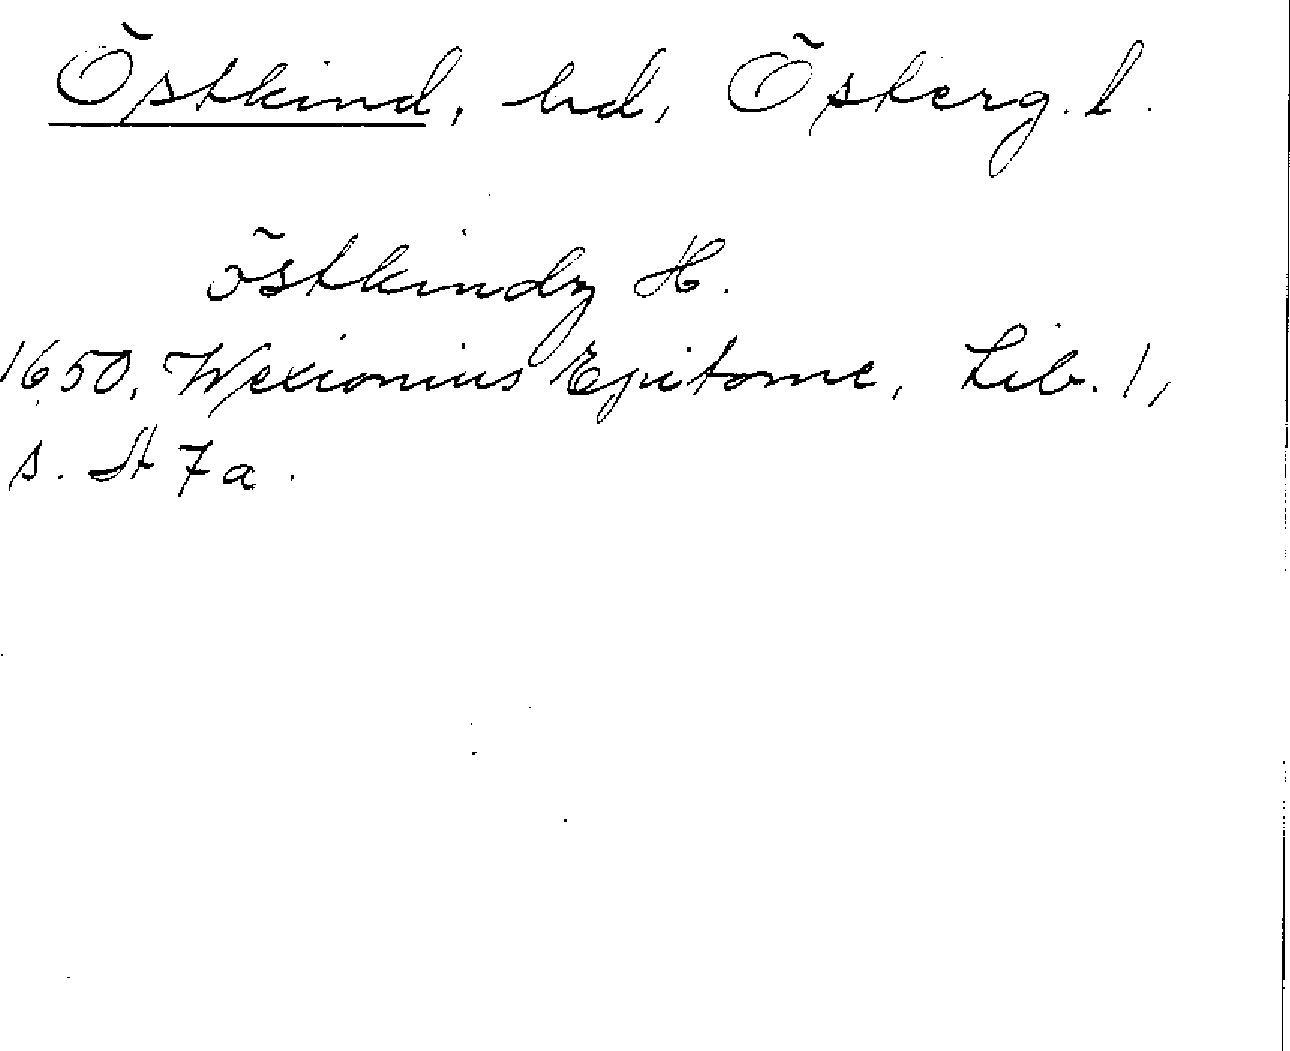 Östkind, hd, Österg. l.
östkindz H.
1650, Wexionius Epitome, Lib. 1,
s. A 7 a.